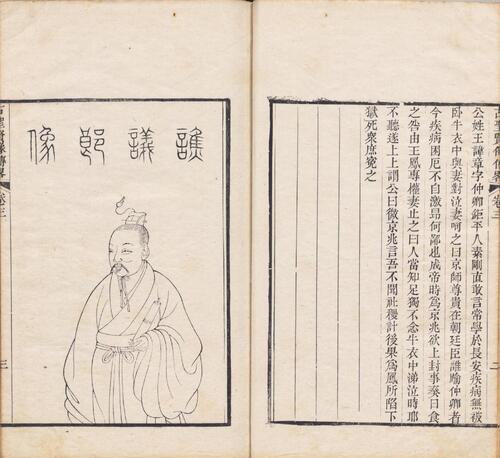 公姓王諱章字仲卿鉅平人素剛直敢言常學於長安疾病無被
臥牛衣中與妻對泣妻呵之曰京師尊貴在朝廷臣誰踰仲卿者
今疾病困厄不自激昂何鄙也成帝時爲京兆欲上封事奏日食
之咎由王鳳專權妻止之曰人當知足獨不念牛衣中涕泣時耶
不聽遂上上謂公曰微京兆言吾不聞社稷計後果爲鳳所陷下
獄死衆庶冤之
卷三
二
譙議郎像
卷三
三